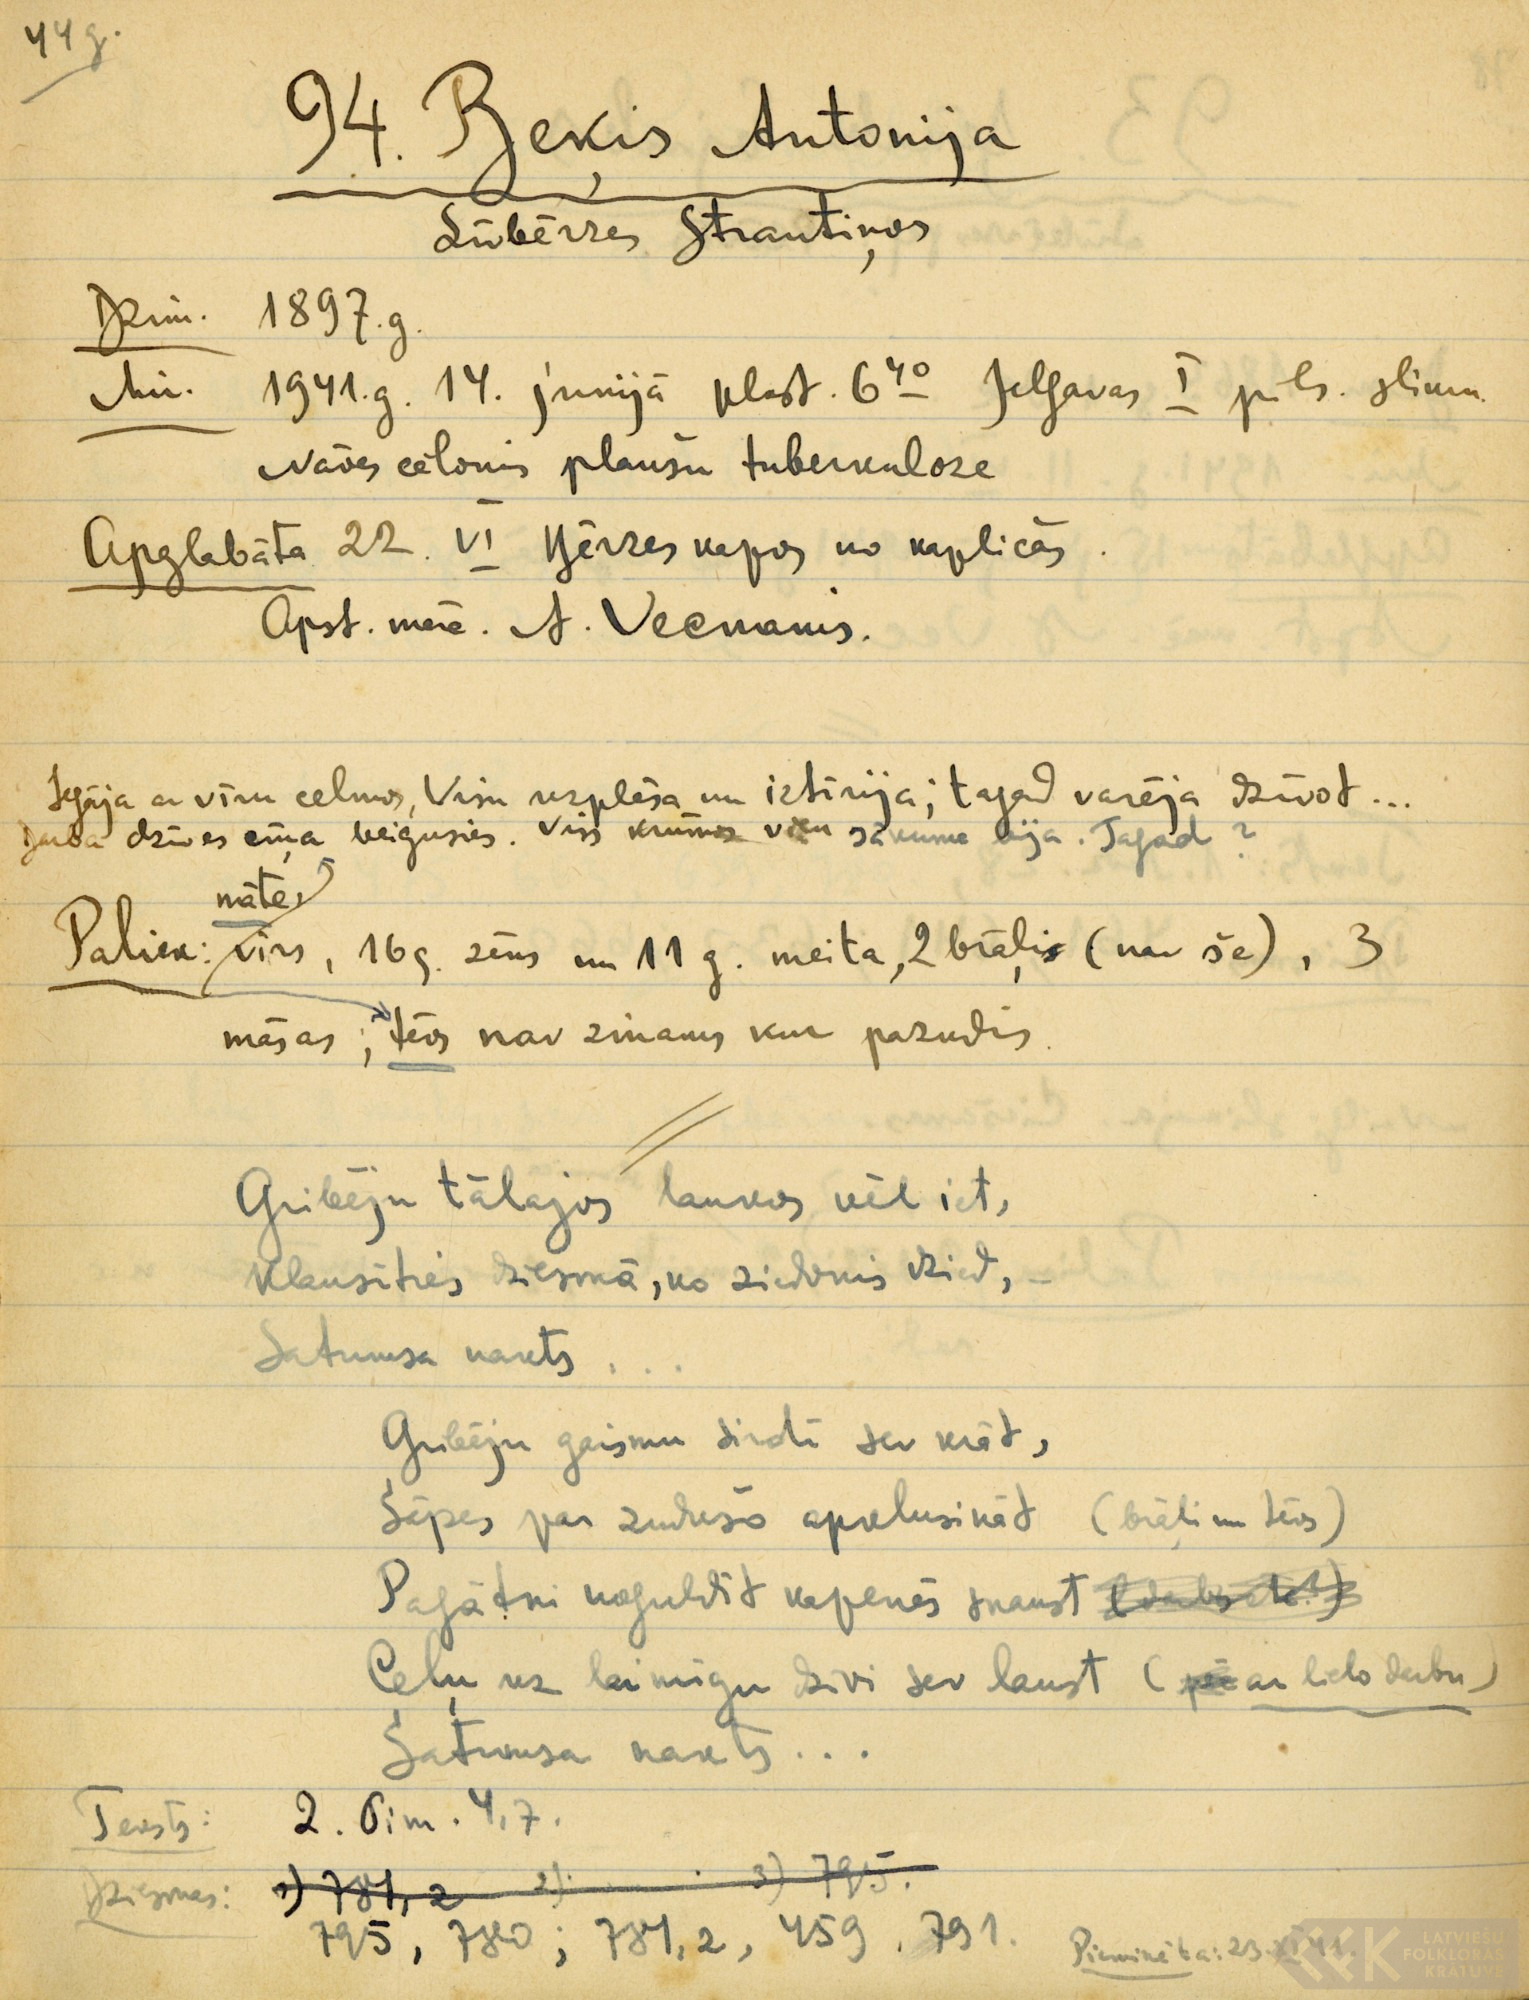 44 g.
94. Beķis Antonija
Līvbērzes Strautiņos
Dzim. 1897.g.
Mir. 1941.g. 14. jūnijā plkst. 6⁴⁰ Jelgavas I pils. slimn.
Nāves cēlonis plaušu tuberkuloze
Apglabāta 22. VI Bērzes kapos no kapličas.
Apst. māc. A. Vecmanis.
Iegāja ar vīru celmos, Visu uzplēsa un iztīrija; tagad varēja dzīvot...
Darba dzīves cīņa beigusies. Viss krūmos sākumā bija. Tagad?
māte,
Paliek: vīrs, 16g. zēns un 11 g. meita, 2 brāļi (nav še), 3
māsas; tēvs nav zinams kur pazudis.
Gribēju tālajos laukos vēl iet,
Klausīties dziesmā, ko ziedonis dzied, –
Satumsa nakts...
Gribēju gaismu sirdī sev krāt,
Sāpes par zudušo apklusināt (brāļi un tēvs)
Pagātni noguldīt kapenēs snaust
Ceļu uz laimīgu dzīvi sev laust (ar lielo darbu)
Satumsa nakts...
Teksts: 2. Tim. 4,7.
Dziesmas: 1) 781, 2 2) 3) 795.
795, 780; 781,2, 459, 791.
Pieminēta: 23. XI 41.
LATVIEŠU
FOLKLORAS
KRĀTUVE